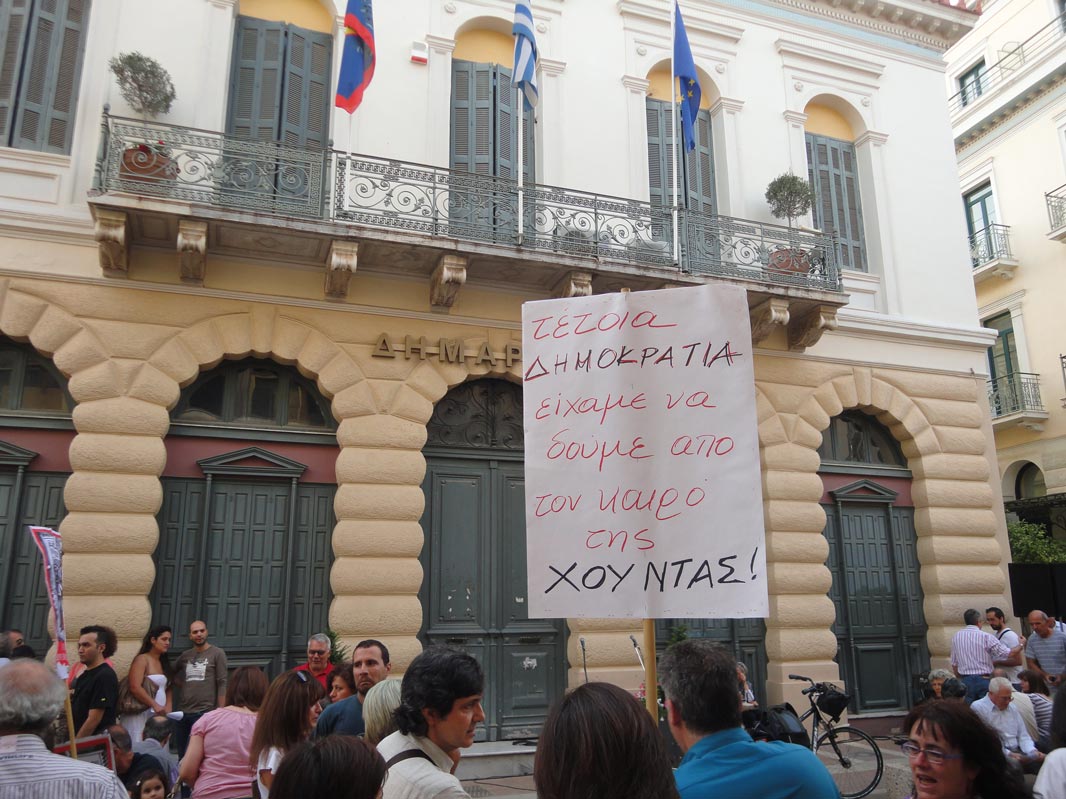 ΔΗΜΑΡ
τέτοια
ΔΗΜΟΚΡΑΤΙΑ
είχαμε να
δούμε απο
τον καιρό
της
ΧΟΥΝΤΑΣ!